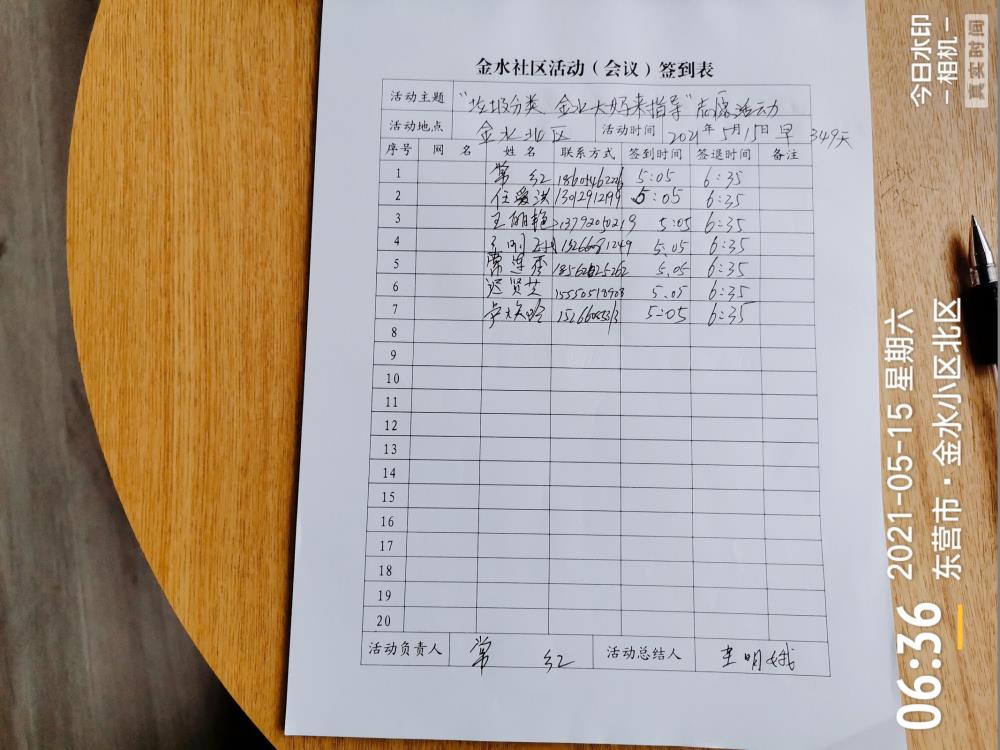 金水社区活动（会议）签到表
活动主题 “垃圾分类 金水大妈来指导”志愿活动
活动地点 金水北区 活动时间 2021年5月15日早 349天
序号 网名 姓名 联系方式 签到时间 签退时间 备注
1 常红 5:05 6:35
2 任爱洪 13012912199 5:05 6:35
3 王丽艳 13792050219 5:05 6:35
4 5:05 6:35
5 常莲秀 5:05 6:35
6 迟贤芝 15550518908 5:05 6:35
7 5:05 6:35
8
9
10
11
12
13
14
15
16
17
18
19
20
活动负责人 常红 活动总结人 李明娥
今日水印
-相机-
真实时间
06:36
2021-05-15 星期六
东营市·金水小区北区